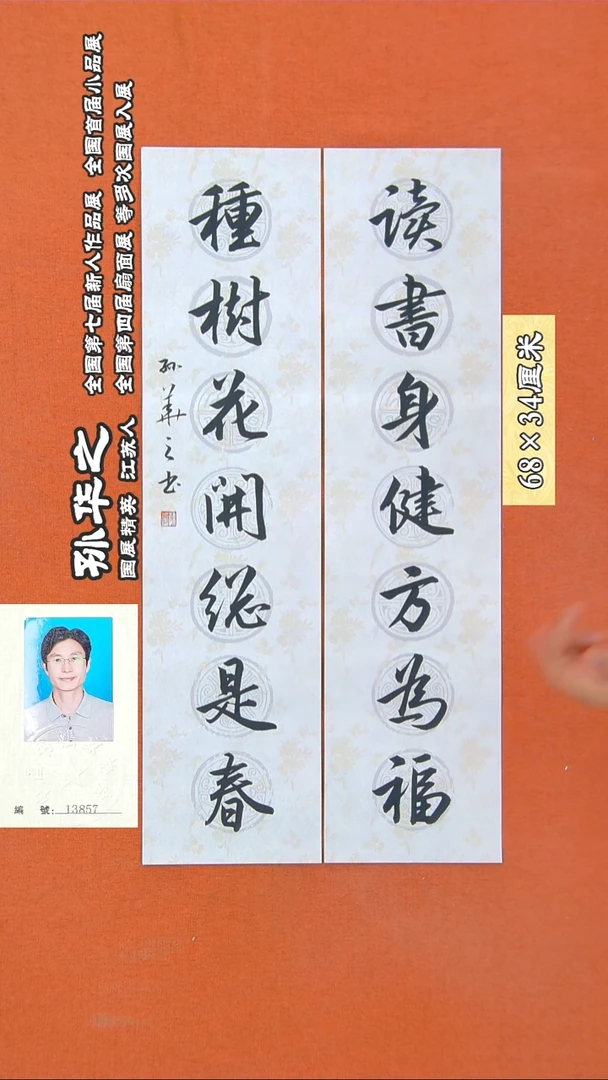 读書身健方為福
種樹花開総是春
孙華之书
68×34厘米
孙华之
国展精英 江苏人
全国第七届新人作品展 全国首届小品展
全国第四届扇面展 等多次国展入展
編 號: 13857